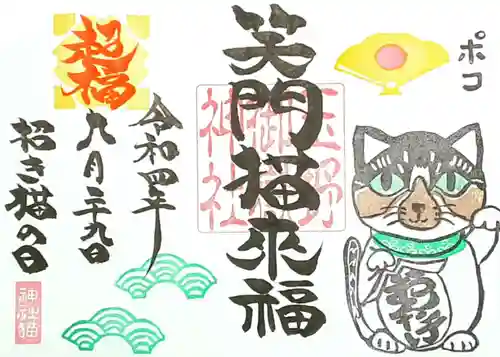 ポコ
笑門猫來福
玉野
御嶽
神社
招福
令和四年
九月二十九日
招き猫の日
神社猫